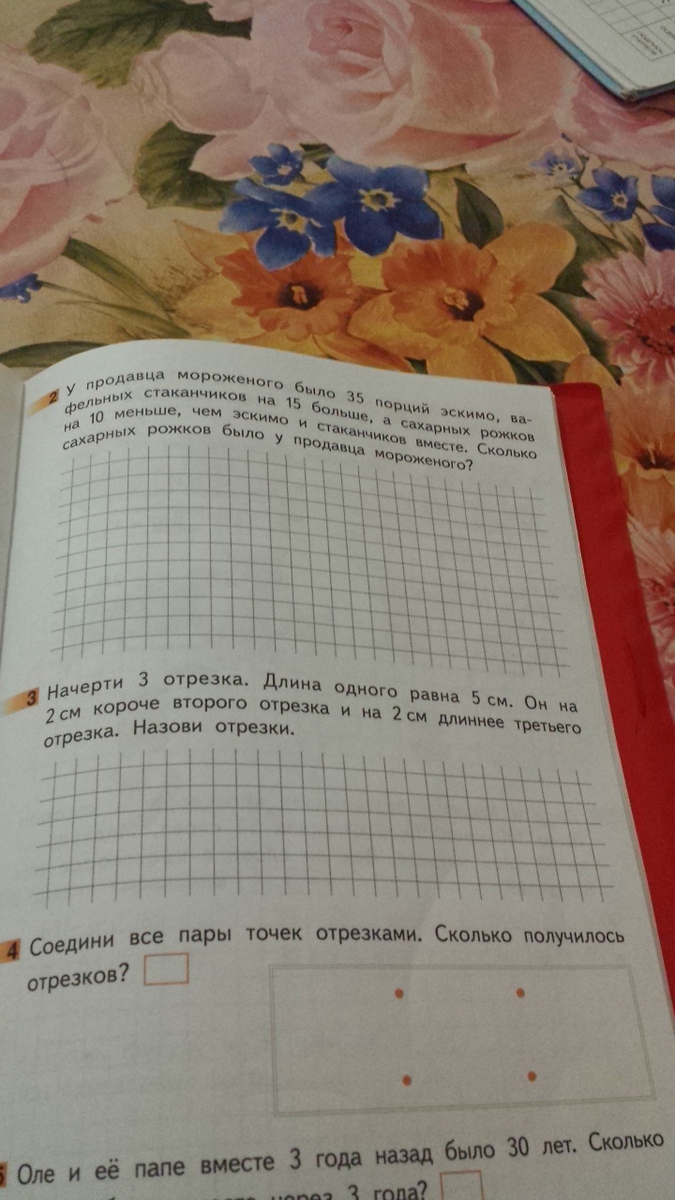 2 У продавца мороженого было 35 порций эскимо, ва-
фельных стаканчиков на 15 больше, а сахарных рожков
на 10 меньше, чем эскимо и стаканчиков вместе. Сколько
сахарных рожков было у продавца мороженого?
3 Начерти 3 отрезка. Длина одного равна 5 см. Он на
2 см короче второго отрезка и на 2 см длиннее третьего
отрезка. Назови отрезки.
4 Соедини все пары точек отрезками. Сколько получилось
отрезков?
5 Оле и её папе вместе 3 года назад было 30 лет. Сколько
через 3 года?